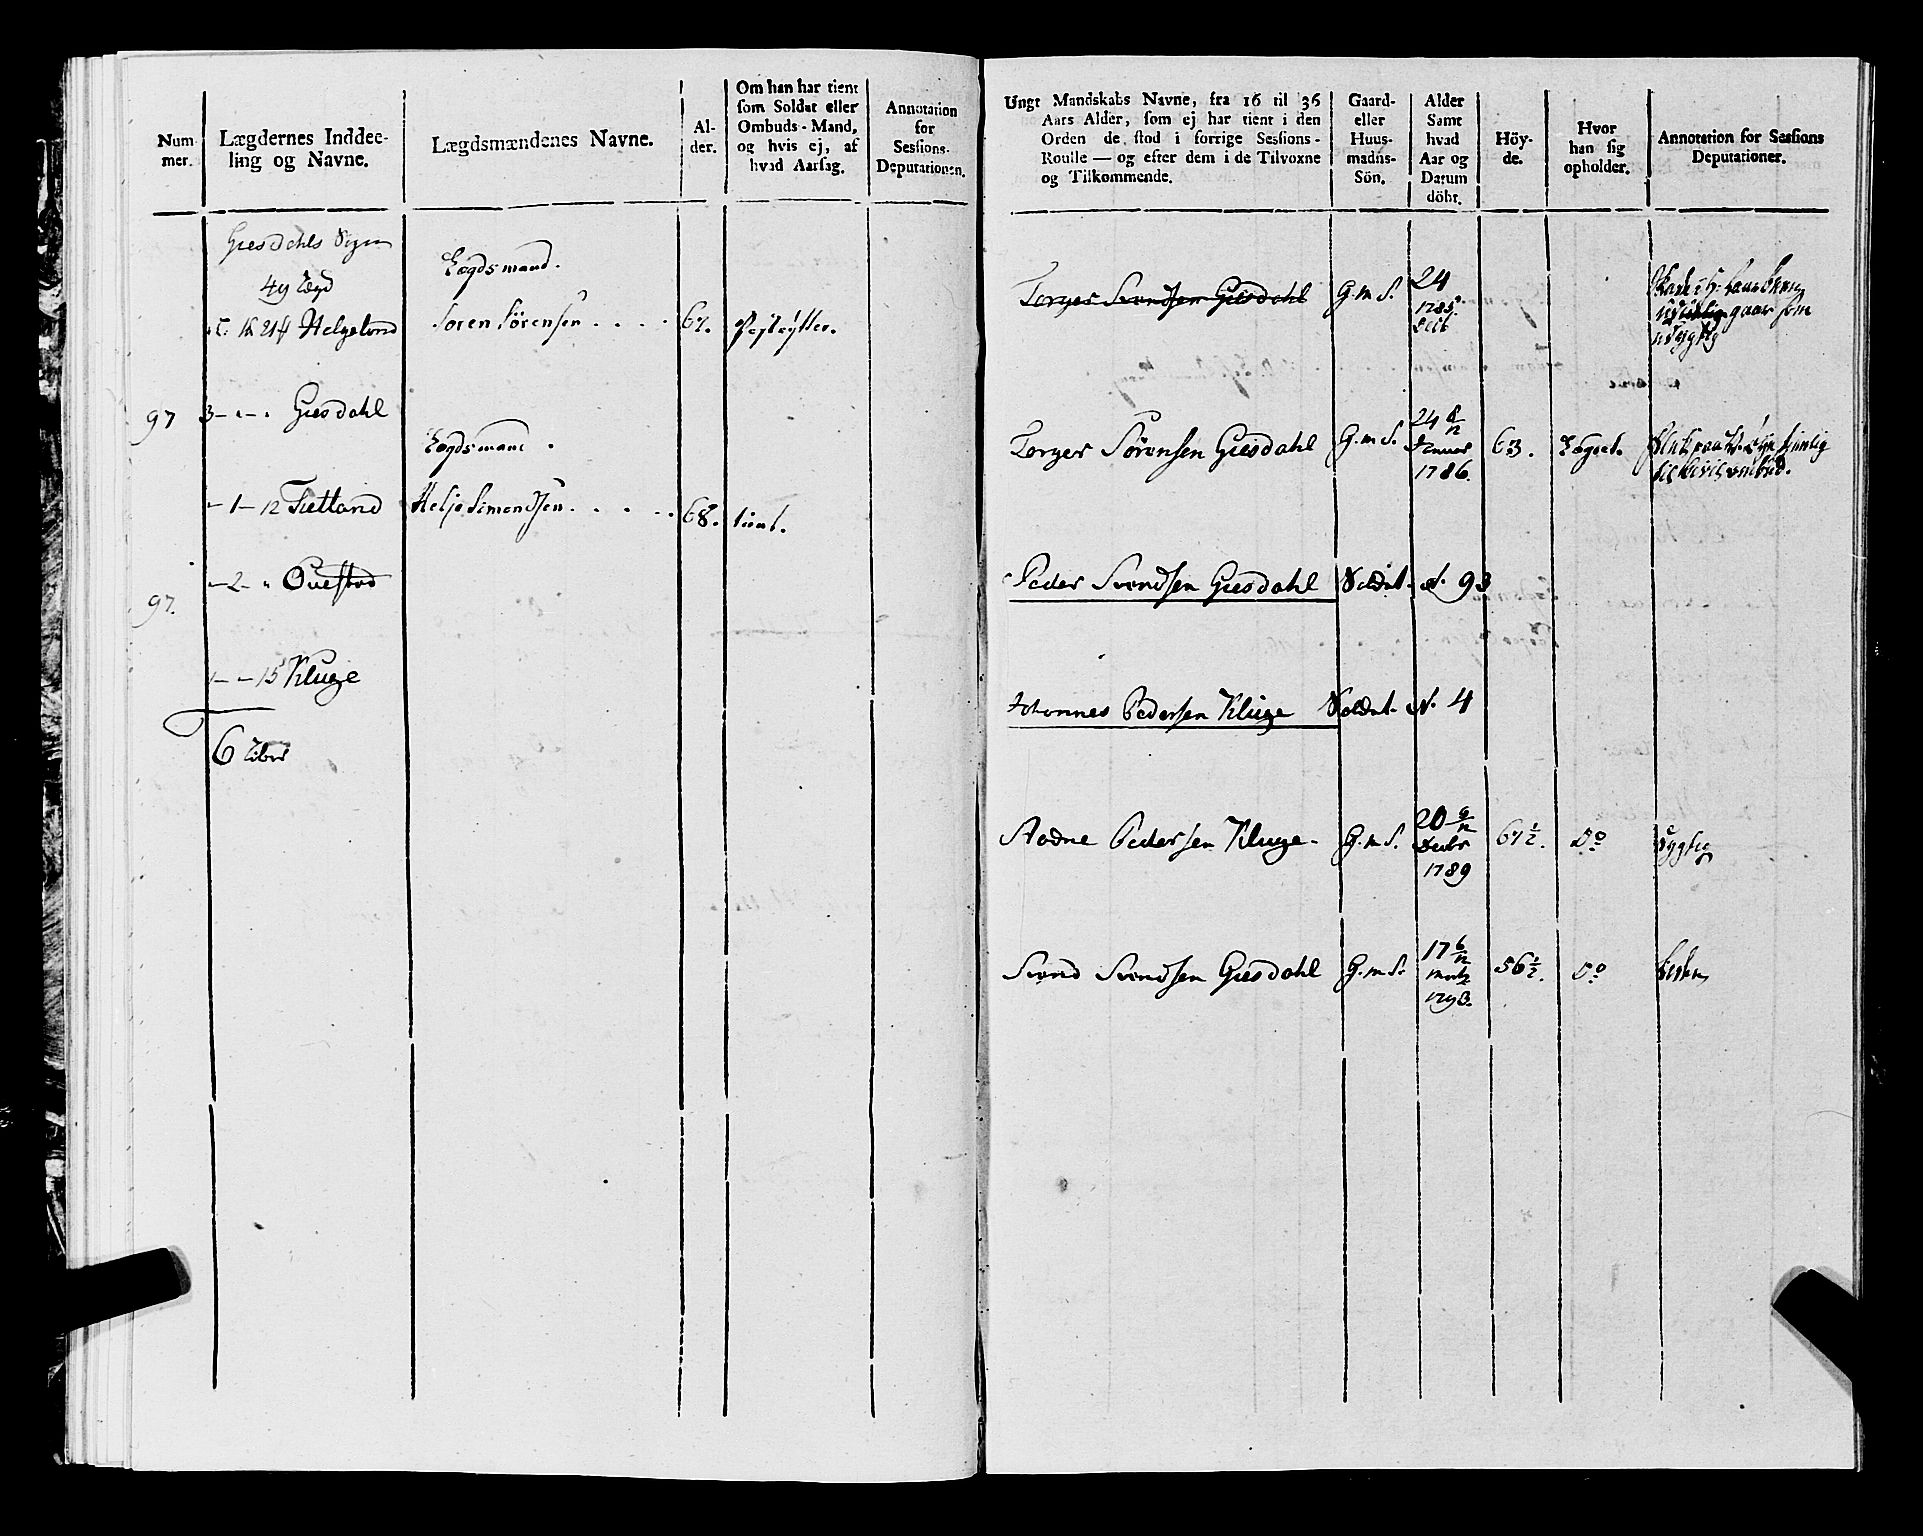 Num
mer.
Lægdernes Inddee-
ling og Navne.
Lægdsmændenes Navne.
Al-
der.
Om han har tient
som Soldat eller
Ombuds-Mand,
og hvis ej, af
hvad Aarsag.
Annotation
for
Sessions-
Deputationen.
Giesdahls Sogn
49 Lægd
Helgeland
Lægdsmand.
Soren Sörensen . . . . 67.
97 3 - " - " Giesdahl
Lægdsmand.
- 1 - 12 Fietland
Helje Simondsen . . . . . 68. tient.
97. - 2 - " Ouestad
1 - - 15 Kluge
6 Liber
Ungt Mandskabs Navne, fra 16 til 36
Aars Alder, som ej har tient i den
Orden de stod i forrige Sessions-
Roulle — og efter dem i de Tilvoxne
og Tilkommende.
Gaard-
eller
Huus-
mands-
Sön.
Alder
Samt
hvad
Aar og
Datum
döbt.
Höy-
de.
Hvor
han sig
opholder.
Annotation for Sessions
Deputationer.
Torger Svendsen Giesdahl G. m S. 24
1785.
gaar som
udygtig
Torger Sörensen Giesdahl G. m S. 24 8/12
Januar
1786.
63. Lægdet.
Peder Svendsen Giesdahl Soldat N. 93
Johannes Pedersen Kluge Soldat N. 4
Aadne Pedersen Kluge G. m S. 20 9/12
Decbr
1789
67 1/2. Do
Dygtig
Svend Svendsen Giesdahl G. m S. 17 6/12
Martz
1793.
56 1/2. Do